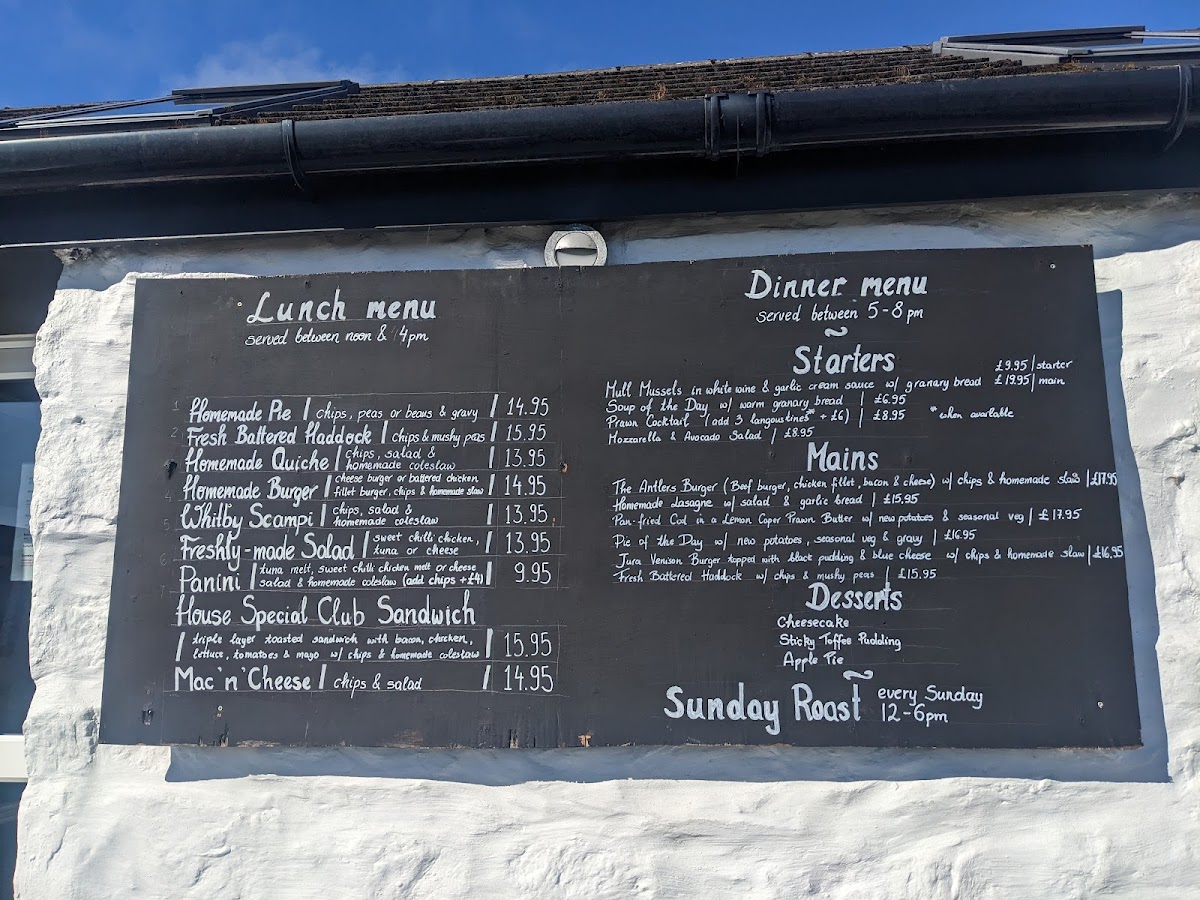 Lunch menu
served between noon & 4pm
Homemade Pie | chips, peas or beans & gravy | 14.95
Fresh Battered Haddock | chips & mushy peas | 15.95
Homemade Quiche | chips, salad &
homemade coleslaw | 13.95
Homemade Burger | cheese burger or battered chicken
fillet burger, chips & homemade slaw | 14.95
Whitby Scampi | chips, salad &
homemade coleslaw | 13.95
Freshly-made Salad | sweet chilli chicken,
tuna or cheese | 13.95
Panini | tuna melt, sweet chilli chicken melt or cheese
salad & homemade coleslaw (add chips +£4) | 9.95
House Special Club Sandwich
| triple layer toasted sandwich with bacon, chicken,
lettuce, tomatoes & mayo w/ chips & homemade coleslaw | 15.95
Mac'n'Cheese | chips & salad | 14.95
Dinner menu
served between 5-8pm
~
Starters
£9.95 | starter
Mull Mussels in white wine & garlic cream sauce w/ granary bread £19.95 | main
Soup of the Day w/ warm granary bread | £6.95
Prawn Cocktail (add 3 langoustines* + £6) | £8.95 *when available
Mozzarella & Avocado Salad | £8.95
Mains
The Antlers Burger (Beef burger, chicken fillet, bacon & cheese) w/ chips & homemade slaw | £17.95
Homemade Lasagne w/ salad & garlic bread | £15.95
Pan-fried Cod in a Lemon Caper Prawn Butter w/ new potatoes & seasonal veg | £17.95
Pie of the Day w/ new potatoes, seasonal veg & gravy | £16.95
Jura Venison Burger topped with black pudding & blue cheese w/ chips & homemade slaw | £16.95
Fresh Battered Haddock w/ chips & mushy peas | £15.95
Desserts
Cheesecake
Sticky Toffee Pudding
Apple Pie
~
Sunday Roast every Sunday
12-6pm